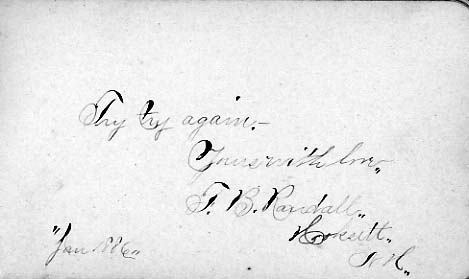 Try try again.-
Yours with love,,
F. B. Randall,,
Hooksett,,
N.H.,,
"Jan 1886,,